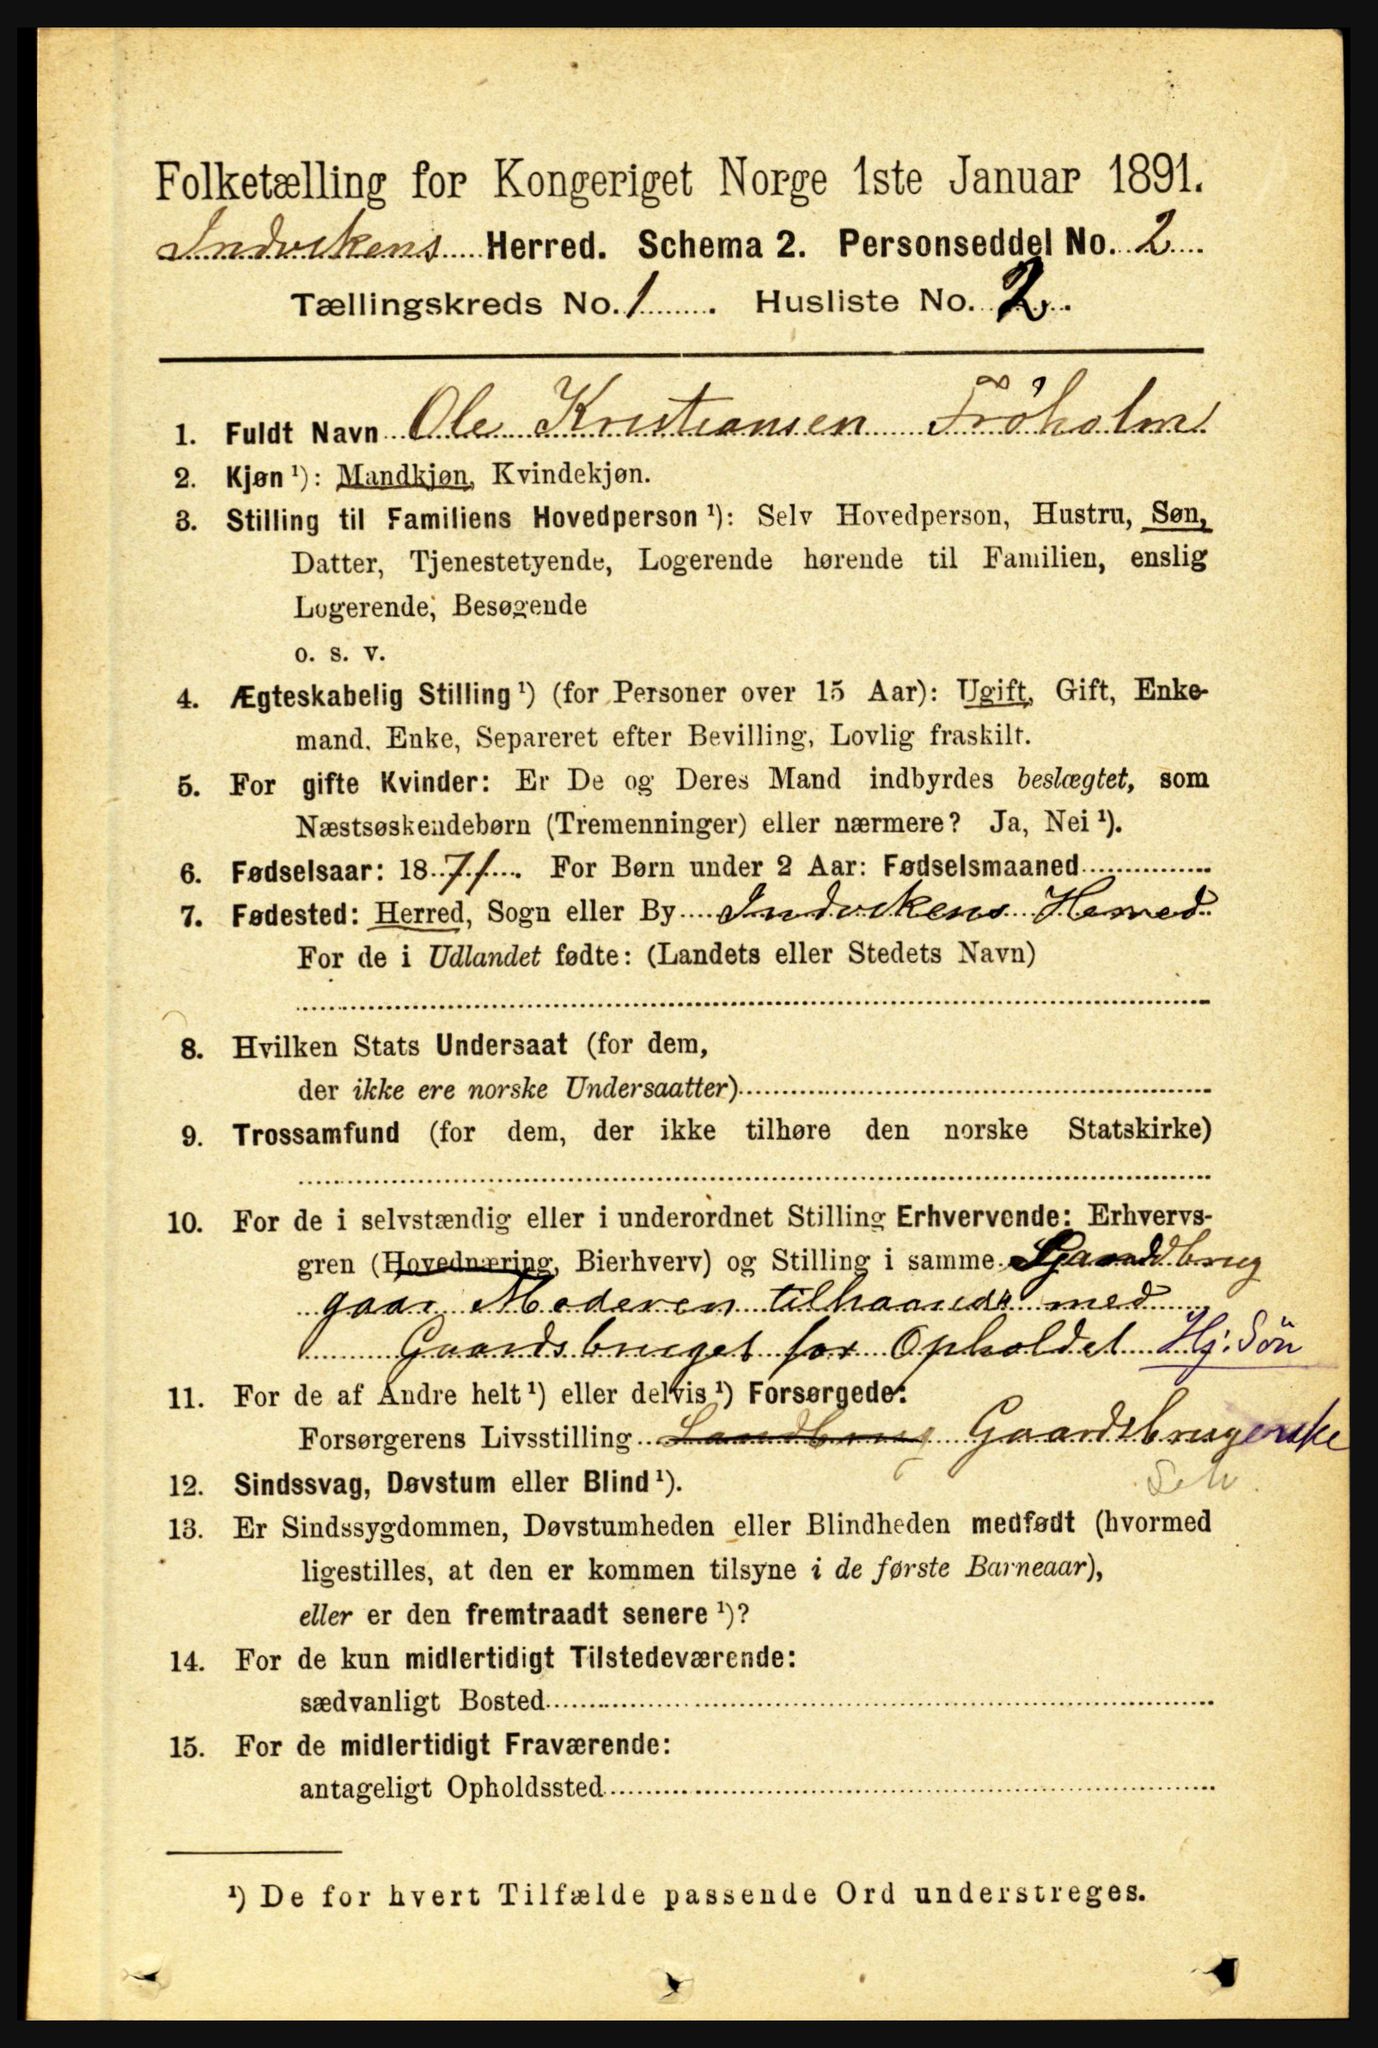 Folketælling for Kongeriget Norge 1ste Januar 1891.
Indvikens Herred. Schema 2. Personseddel No. 2
Tællingskreds No. 1. Husliste No. 2.
1. Fuldt Navn Ole Kristiansen Fröholm
2. Kjøn ¹): Mandkjøn, Kvindekjøn.
3. Stilling til Familiens Hovedperson ¹): Selv Hovedperson, Hustru, Søn,
Datter, Tjenestetyende, Logerende hørende til Familien, enslig
Logerende, Besøgende
o. s. v.
4. Ægteskabelig Stilling ¹) (for Personer over 15 Aar): Ugift, Gift, Enke-
mand, Enke, Separeret efter Bevilling, Lovlig fraskilt.
5. For gifte Kvinder: Er De og Deres Mand indbyrdes beslægtet, som
Næstsøskendebørn (Tremenninger) eller nærmere? Ja, Nei ¹).
6. Fødselsaar: 1871. For Børn under 2 Aar: Fødselsmaaned
7. Fødested: Herred, Sogn eller By Indvikens Herred
For de i Udlandet fødte: (Landets eller Stedets Navn)
8. Hvilken Stats Undersaat (for dem,
der ikke ere norske Undersaatter)
9. Trossamfund (for dem, der ikke tilhøre den norske Statskirke)
10. For de i selvstændig eller i underordnet Stilling Erhvervende: Erhvervs-
gren (Hovednæring, Bierhverv) og Stilling i samme
gaar Moderen tilhaande med
Gaardsbruget for Opholdet Hj. Sön
11. For de af Andre helt ¹) eller delvis ¹) Forsørgede:
Forsørgerens Livsstilling Landbrug Gaardsbrugerske
12. Sindssvag, Døvstum eller Blind ¹).
13. Er Sindssygdommen, Døvstumheden eller Blindheden medfødt (hvormed
ligestilles, at den er kommen tilsyne i de første Barneaar),
eller er den fremtraadt senere ¹)?
14. For de kun midlertidigt Tilstedeværende:
sædvanligt Bosted
15. For de midlertidigt Fraværende:
antageligt Opholdssted
¹) De for hvert Tilfælde passende Ord understreges.